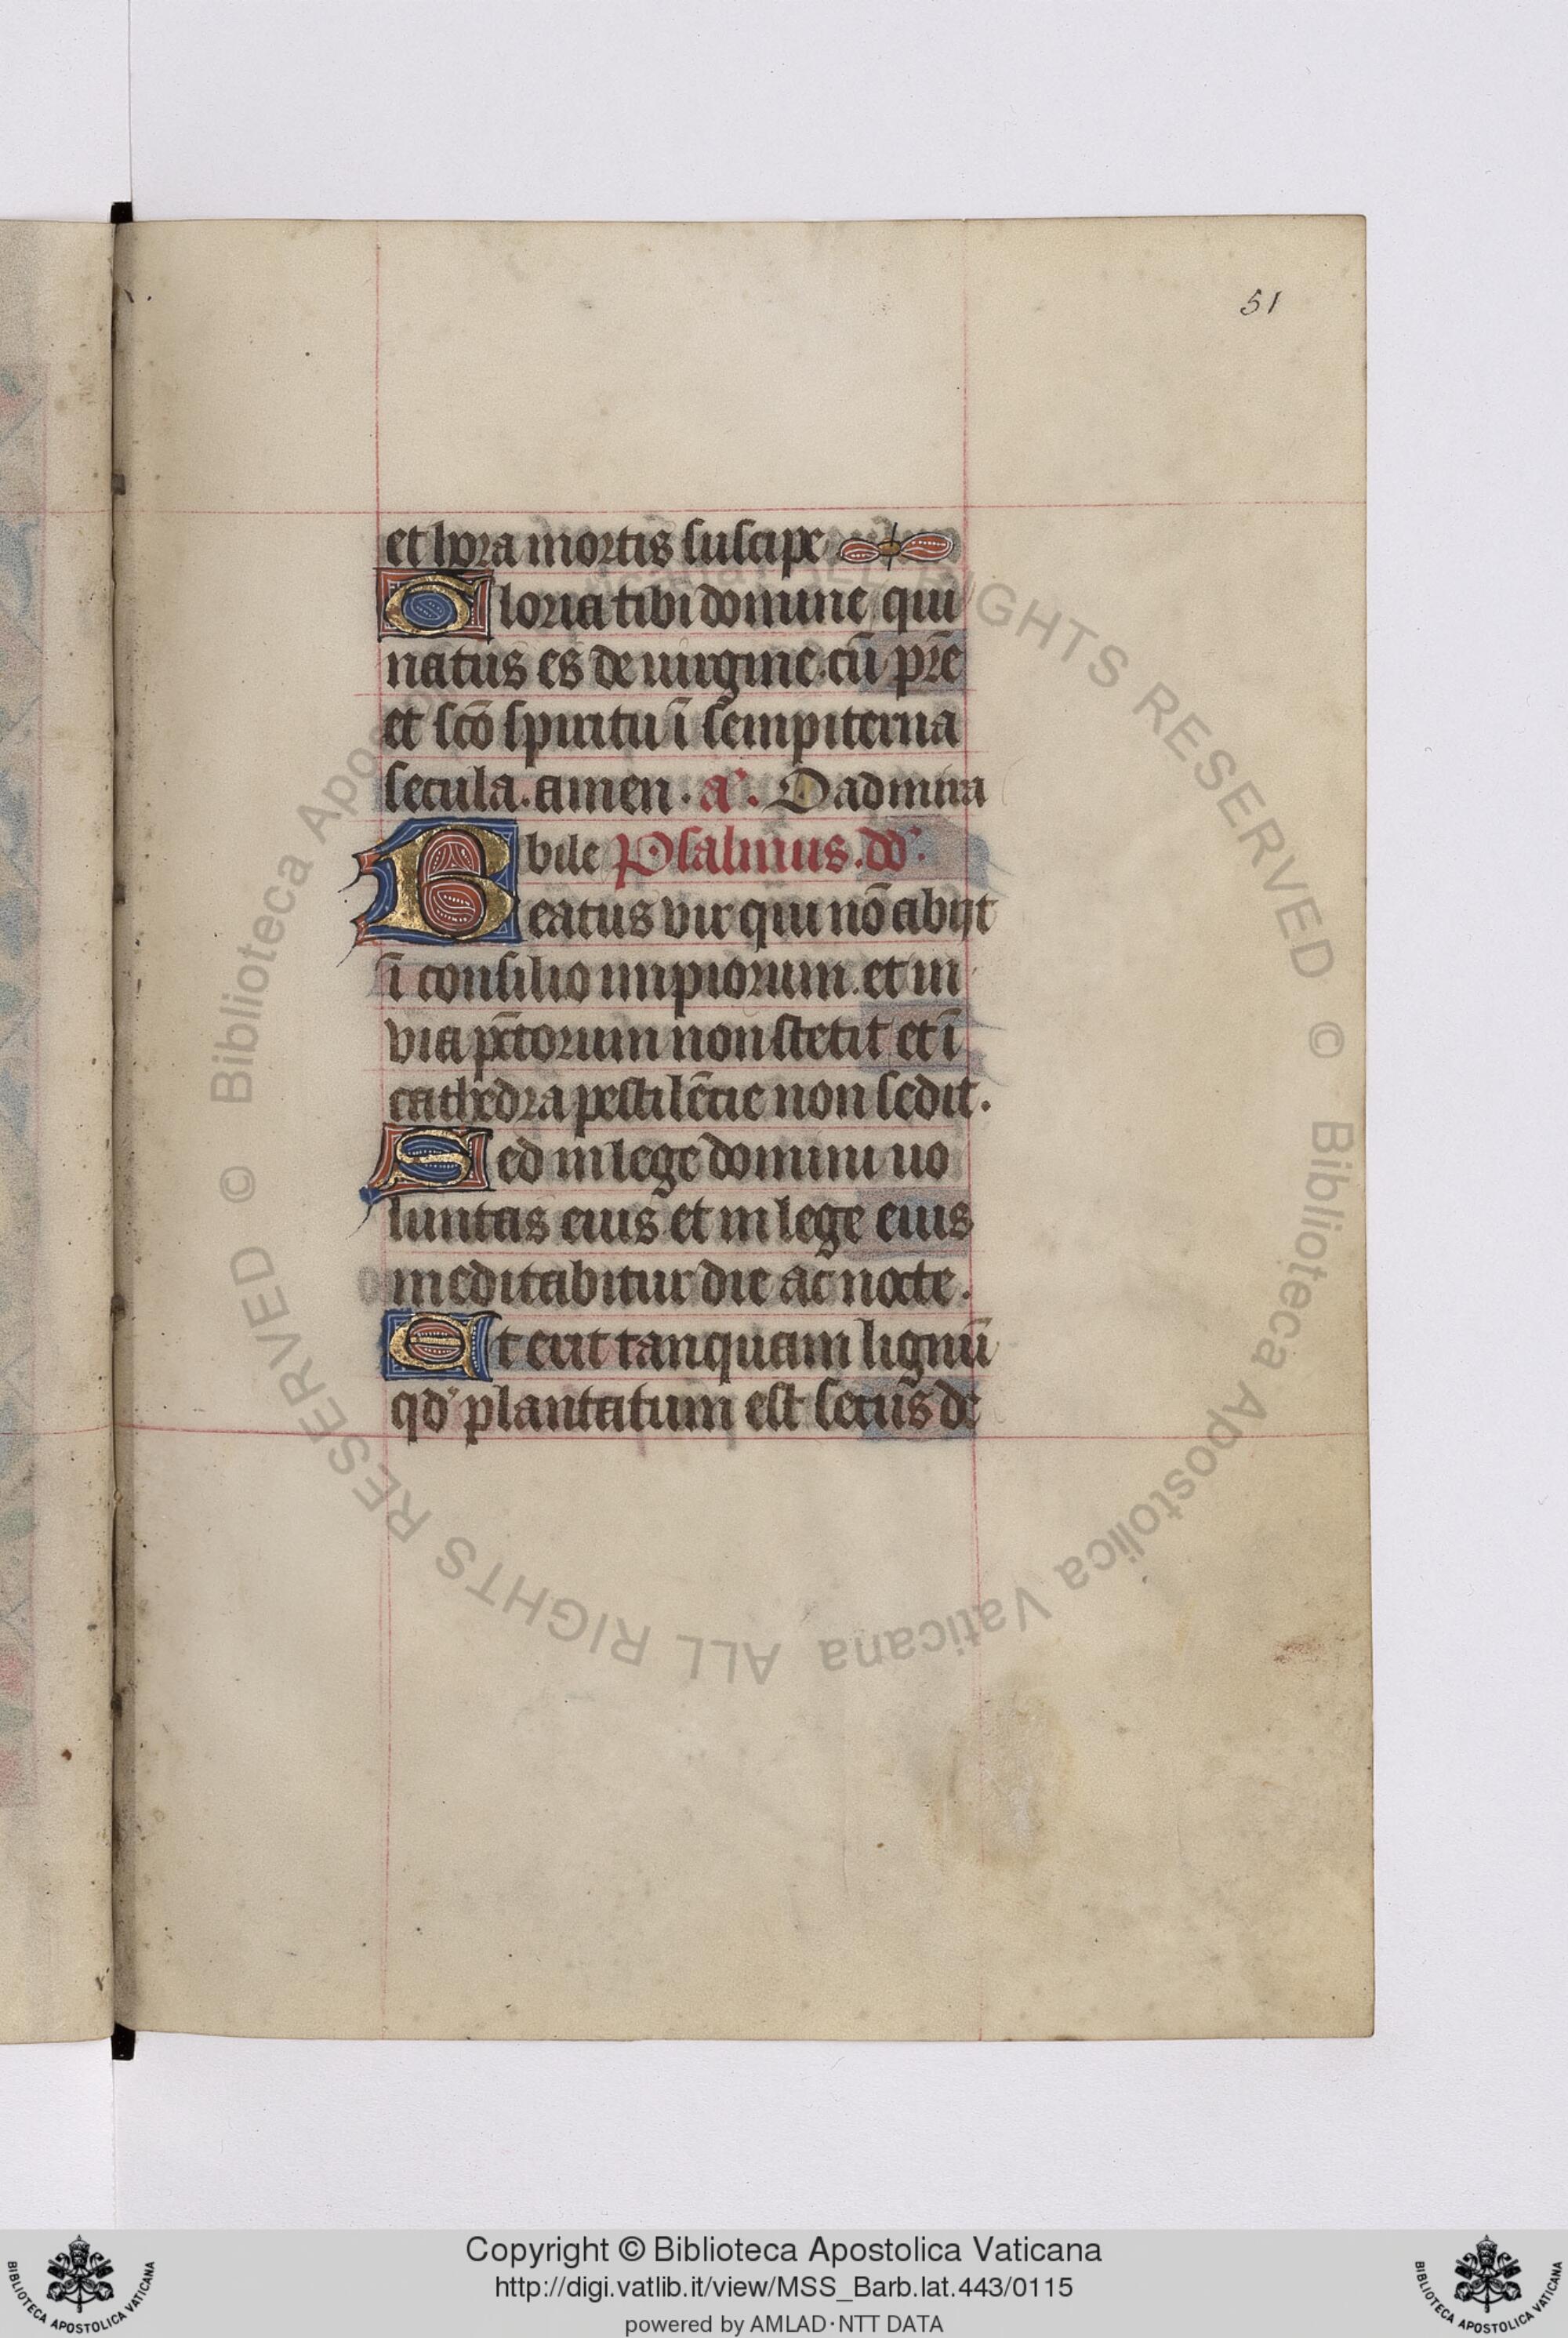 51
et hora mortis suscipe
Gloria tibi domine qui
natus es de uirgine. cū pr̄e
et sc̄o spiritu ī sempiterna
secula. amen. a͛. O admira
bile Psalmus. dd͛.
Beatus vir qui nō abijt
ī consilio impiorum. et in
via pc̄torum non stetit et ī
cathedra pestilēcie non sedit.
Sed in lege domini uo
luntas eius et in lege eius
meditabitur die ac nocte.
Et erit tanquam lignū
qd͛ plantatum est secus de
© Biblioteca Apostolica Vaticana ALL RIGHTS RESERVED
© Biblioteca Apostolica Vaticana ALL RIGHTS RESERVED
Copyright © Biblioteca Apostolica Vaticana
http://digi.vatlib.it/view/MSS_Barb.lat.443/0115
powered by AMLAD·NTT DATA
BIBLIOTECA APOSTOLICA VATICANA
BIBLIOTECA APOSTOLICA VATICANA